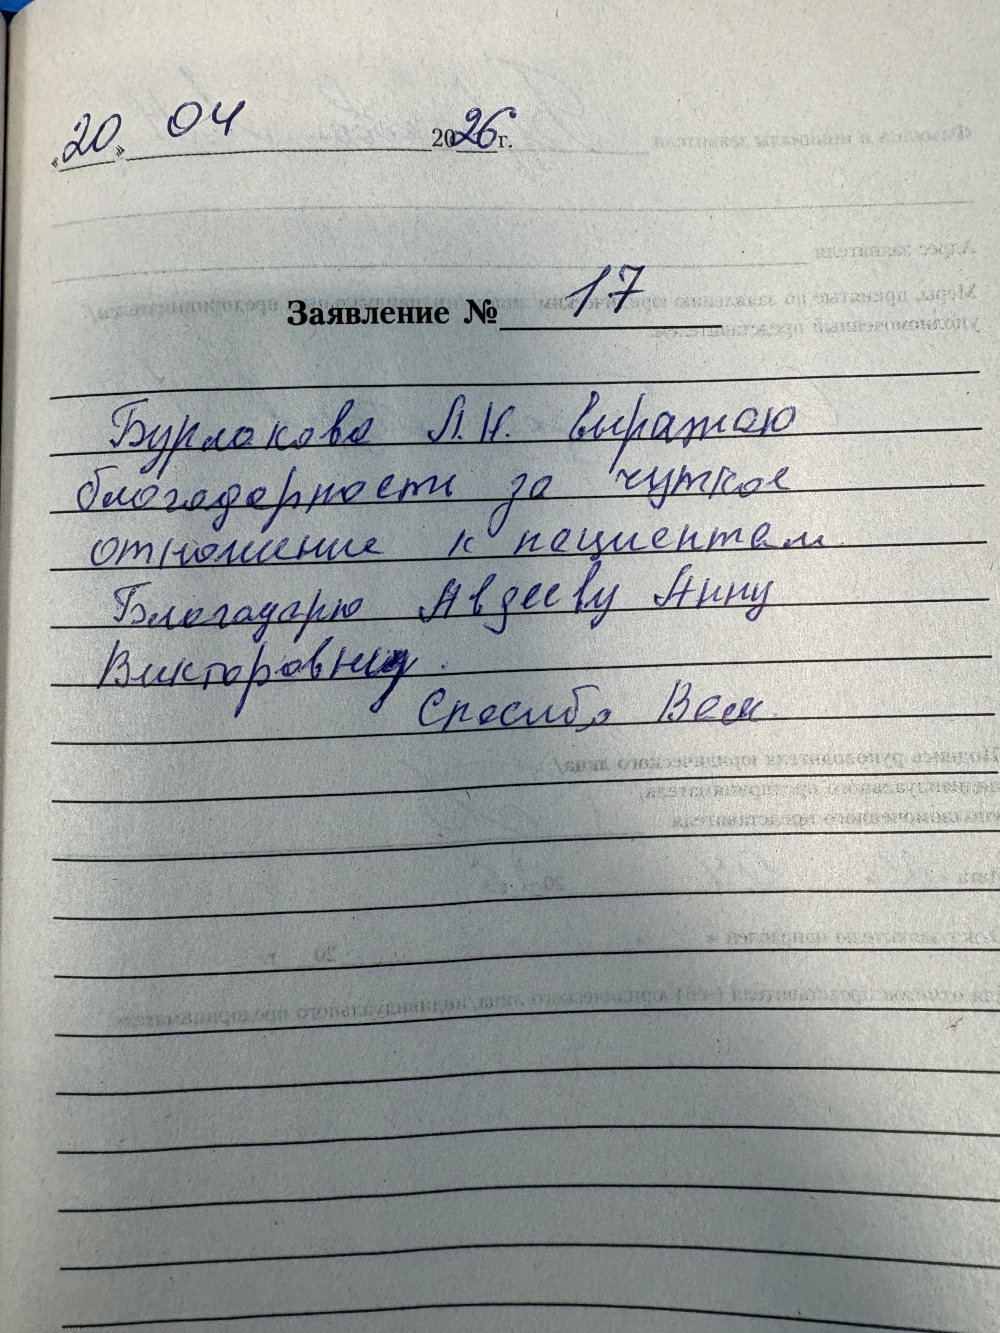 «20» 04 2026 г.
Заявление № 17
Бурлакова Л.Н. выражаю
благодарности за чуткое
отношение к пациентам
Благодарю Авдееву Анну
Викторовну.
Спасибо Вам.